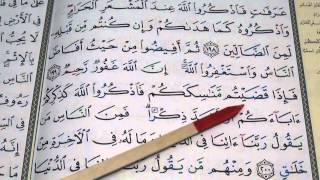 عَرَفَٰتٍ فَٱذْكُرُوا۟ ٱللَّهَ عِندَ ٱلْمَشْعَرِ ٱلْحَرَامِ
وَٱذْكُرُوهُ كَمَا هَدَىٰكُمْ وَإِن كُنتُم مِّن قَبْلِهِۦ
لَمِنَ ٱلضَّآلِّينَ ١٩٨ ثُمَّ أَفِيضُوا۟ مِنْ حَيْثُ أَفَاضَ
ٱلنَّاسُ وَٱسْتَغْفِرُوا۟ ٱللَّهَ إِنَّ ٱللَّهَ غَفُورٌ رَّحِيمٌ ١٩٩
فَإِذَا قَضَيْتُم مَّنَٰسِكَكُمْ فَٱذْكُرُوا۟ ٱللَّهَ كَذِكْرِكُمْ
ءَابَآءَكُمْ ذِكْرًا فَمِنَ ٱلنَّاسِ مَن
يَقُولُ رَبَّنَآ ءَاتِنَا فِى ٱلدُّنْيَا وَمَا لَهُۥ فِى ٱلْـَٔاخِرَةِ مِنْ
خَلَٰقٍ ٢٠٠ وَمِنْهُم مَّن يَقُولُ رَبَّنَآ ءَاتِنَا فِى ٱلدُّنْيَا